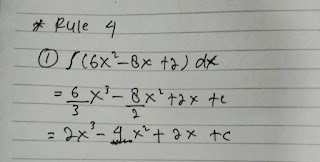 * Rule 4
① ∫(6x²-8x +2) dx
= 6/3 x³ - 8/2 x² +2x +c
= 2x³ - 4 x² + 2x +c